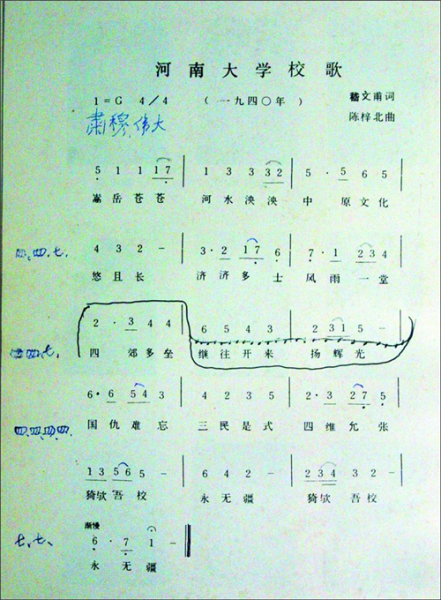 河南大学校歌
1=G 4/4 （一九四〇年） 嵇文甫词
肃穆、伟大 陈梓北曲
5 1 1 1 7 | 1 3 3 3 2 | 5 · 5 6 5 |
嵩岳苍苍 河水泱泱 中原文化
四、四、七、 4 3 2 - | 3 · 2 1 7 6 | 7 · 1 2 3 4 |
悠且长 济济多士 风雨一堂
2 · 3 4 4 | 6 5 4 3 | 2 3 1 5 - |
四、七、 四郊多垒 继往开来 扬辉光
6 · 6 5 4 3 | 4 2 3 5 | 2 · 3 2 7 5 |
四、四、四、四、 国仇难忘 三民是式 四维允张
1 3 5 6 5 - | 6 4 2 - | 2 3 4 3 2 - |
猗欤吾校 永无疆 猗欤吾校
渐慢
七、七、 6 · 7 1 - ‖
永无疆